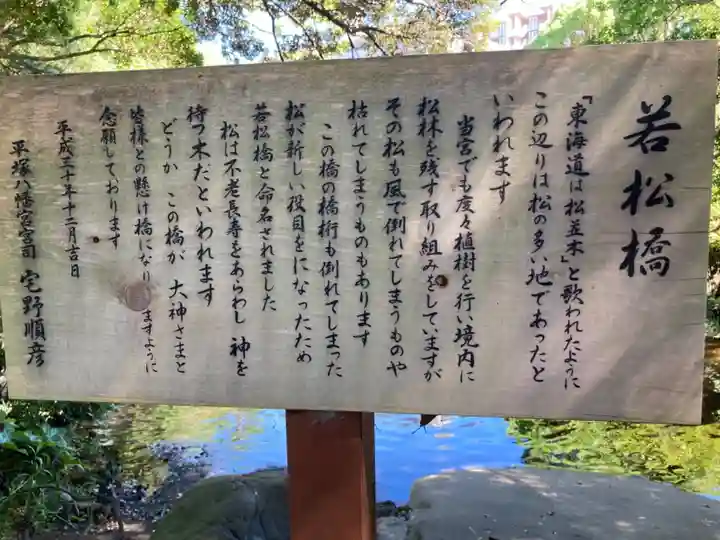 若松橋
「東海道は松並木」と歌われたように
この辺りは松の多い地であったと
いわれます
当宮でも度々植樹を行い境内に
松林を残す取り組みをしていますが
その松も風で倒れてしまうものや
枯れてしまうものもあります
この橋の橋桁も倒れてしまった
松が新しい役目をになったため
若松橋と命名されました
松は不老長寿をあらわし 神を
待つ木だといわれます
どうか この橋が 大神さまと
皆様との懸け橋になりますように
念願しております
平成三十年十二月吉日
平塚八幡宮宮司 宅野順彦